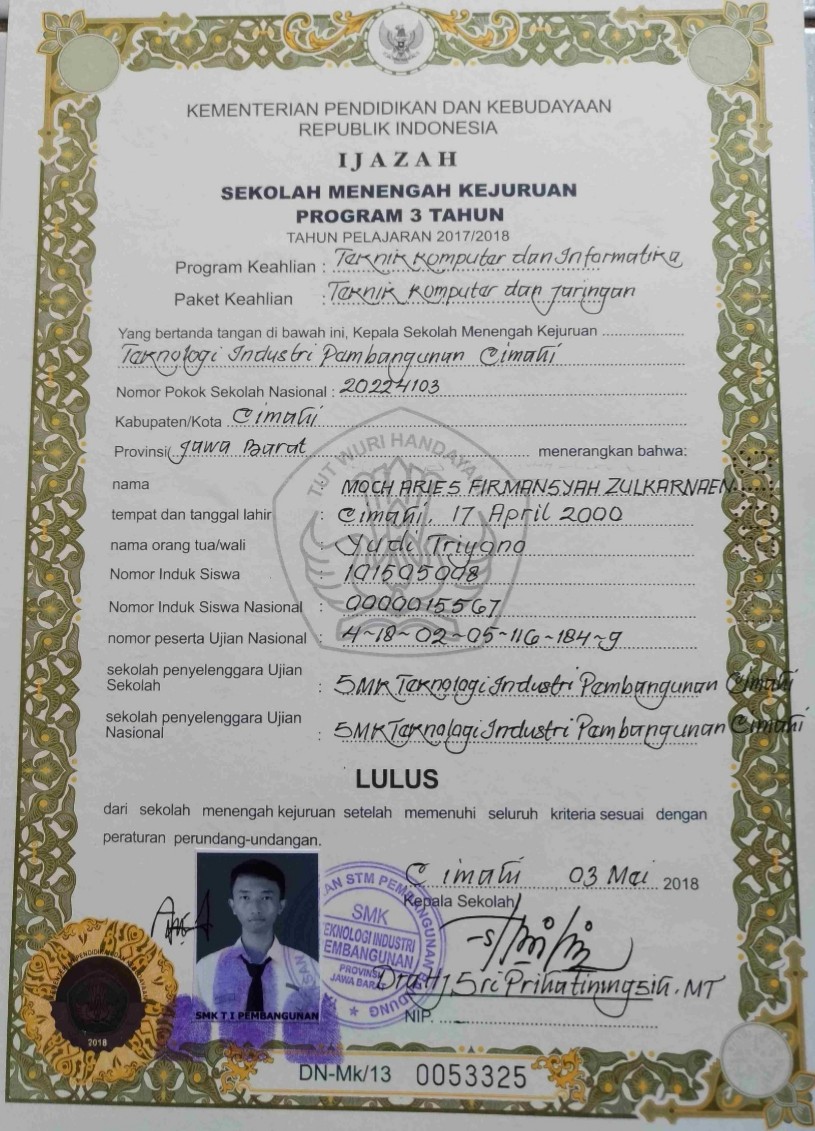 KEMENTERIAN PENDIDIKAN DAN KEBUDAYAAN
REPUBLIK INDONESIA
IJAZAH
SEKOLAH MENENGAH KEJURUAN
PROGRAM 3 TAHUN
TAHUN PELAJARAN 2017/2018
Program Keahlian : Teknik Komputer dan Informatika
Paket Keahlian : Teknik Komputer dan Jaringan
Yang bertanda tangan di bawah ini, Kepala Sekolah Menengah Kejuruan
Teknologi Industri Pembangunan Cimahi
Nomor Pokok Sekolah Nasional : 20224103
Kabupaten/Kota Cimahi
Provinsi Jawa Barat menerangkan bahwa:
TUT WURI HANDAYANI
nama : MOCH ARIES FIRMANSYAH ZULKARNAEN
tempat dan tanggal lahir : Cimahi, 17 April 2000
nama orang tua/wali : Yudi Triyono
Nomor Induk Siswa : 101505008
Nomor Induk Siswa Nasional : 0000015567
nomor peserta Ujian Nasional : 4-18-02-05-116-184-9
sekolah penyelenggara Ujian
Sekolah : SMK Teknologi Industri Pembangunan Cimahi
sekolah penyelenggara Ujian
Nasional : SMK Teknologi Industri Pembangunan Cimahi
LULUS
dari sekolah menengah kejuruan setelah memenuhi seluruh kriteria sesuai dengan
peraturan perundang-undangan.
Cimahi, 03 Mei 2018
Kepala Sekolah
SMK
TEKNOLOGI INDUSTRI
PEMBANGUNAN
PROVINSI
JAWA BARAT
Dra.Hj.Sri Prihatiningsih.MT
NIP.
SMK T I PEMBANGUNAN
2018
DN-Mk/13 0053325